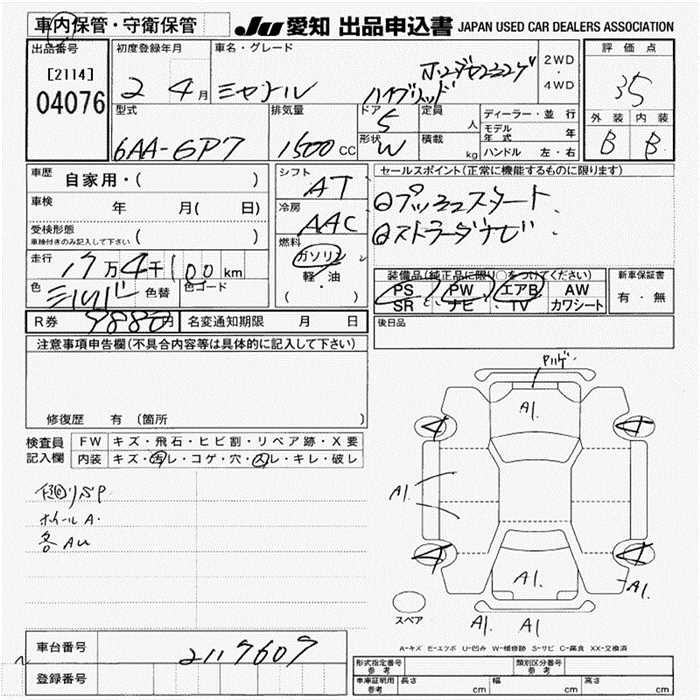 車内保管・守衛保管
JU 愛知 出品申込書 JAPAN USED CAR DEALERS ASSOCIATION
出品番号
[2114]
04076
初度登録年月
2 4月
車名・グレード
シャトル
ハイブリッド
2WD
・
4WD
評価点
3.5
外装 内装
B B
型式
6AA-GP7
排気量
1500 CC
ドア
5
形状
W
定員
人
積載
kg
ディーラー・並行
モデル年式 年
ハンドル 左・右
車歴
自家用・( )
車検 年 月(日)
受検形態
車検付きのみ記入して下さい ( )
走行 17万4千100km
色 シルバー 色替 色コード
シフト
AT
冷房
AAC
燃料
ガソリン
軽油
( )
セールスポイント(正常に機能するものに限ります)
◎プッシュスタート
◎ストラーダナビ
装備品(純正品に限り○をつけてください)
PS PW エアB AW
SR ナビ TV カワシート
新車保証書
有・無
R券 9880円 名変通知期限 月 日
後日品
注意事項申告欄(不具合内容等は具体的に記入して下さい)
修復歴 有(箇所 )
検査員記入欄
FW キズ・飛石・ヒビ割・リペア跡・X要
内装 キズ・汚レ・コゲ・穴・凹レ・キレ・破レ
ホイールA.
各AU
A1.
A1.
A1.
A1.
A1.
A1.
4
4
4
4
スペア
A-キズ E-エクボ U-凹み W-補修跡 S-サビ C-腐食 XX-交換済
車台番号 2117607
登録番号
形式指定番号 参考
類別区分番号 参考
車庫証明用 参考 長さ cm 幅 cm 高さ cm